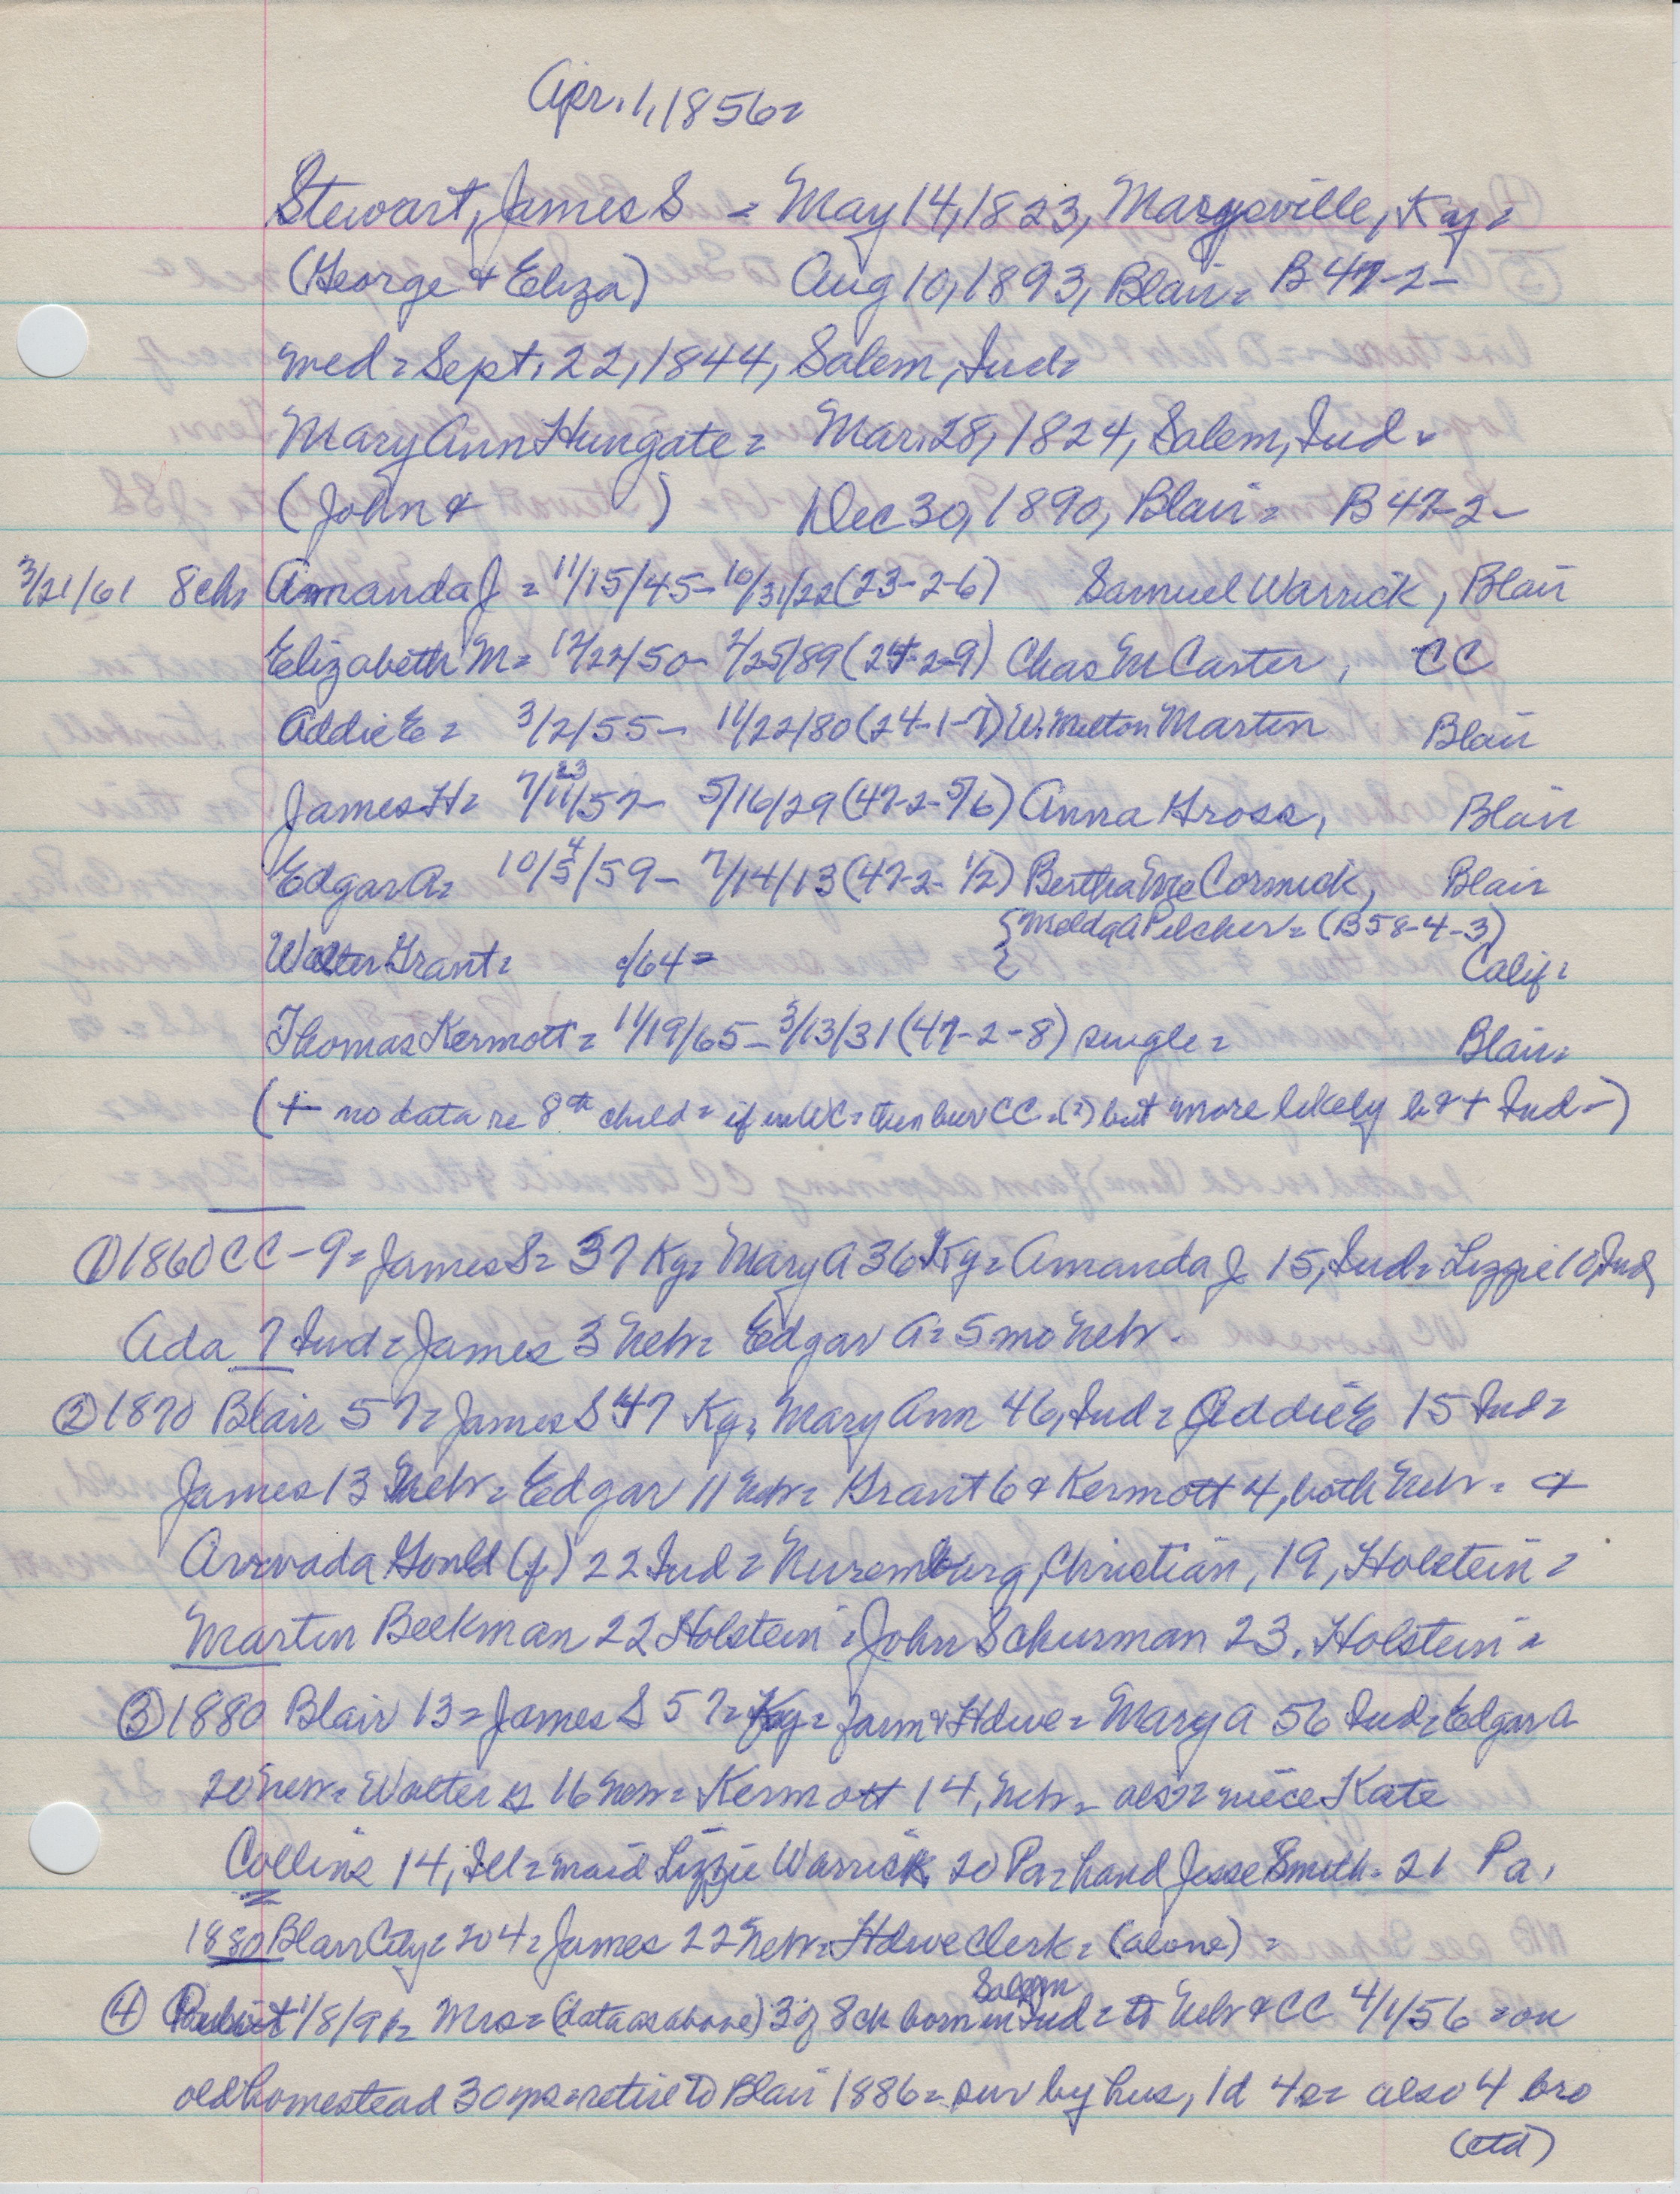 Apr. 1, 1856=
Stewart, James S = May 14, 1823, Marysville, Ky=
(George & Eliza) Aug 10, 1893, Blair= B 47-2-
med= Sept. 22, 1844, Salem, Ind=
Mary Ann Hungate= Mar. 28, 1824, Salem, Ind=
(John & ) Dec 30, 1890, Blair= B 47-2-
3/21/61 8 ch= Amanda J = 11/15/45- 10/31/22 (23-2-6) Samuel Warrick, Blair
Elizabeth M= 12/22/50- 2/25/89 (24-2-9) Chas M Carter, CC
Addie E= 3/2/55- 11/22/80 (24-1-7) W. Milton Martin Blair
23
James H= 7/11/57- 5/16/29 (47-2-5/6) Anna Gross, Blair
4
Edgar A= 10/5/59- 7/14/13 (47-2-1/2) Bertha McCormick, Blair
{ A Pilcher= (B58-4-3)
Walter Grant= c/64= { Calif=
Thomas Kermott= 11/19/65- 3/13/31 (47-2-8) single= Blair=
(+ no data re 8th child= if in WC= then bur CC=(?) but more likely b & + Ind-)
① 1860 CC-9= James S= 37 Ky= Mary A 36 Ky= Amanda J 15, Ind= Lizzie 10, Ind,
Ada 7 Ind= James 3 Nebr= Edgar A= 5 mo Nebr.
② 1870 Blair 57= James S 47 Ky, Mary Ann 46, Ind= Addie E 15 Ind=
James 13 Nebr= Edgar 11 Nebr= Grant 6 & Kermott 4, both Nebr= &
Arvvada Gould (f) 22 Ind= Nuremburg, Christian, 19, Holstein=
Martin Beekman 22 Holstein= John Schurman 23, Holstein=
③ 1880 Blair 13= James S 57= Ky= farm & Hdwe= Mary A 56 Ind= Edgar A
20 Nebr= Walter G 16 Nebr= Kermott 14, Nebr= also= niece Kate
Collins 14, Ill= maid Lizzie Warrick 20 Pa= hand Jesse Smith= 21 Pa,
1880 Blair City= 204= James 22 Nebr= Hdwe Clerk= (alone)=
Salem
④ 1/8/91= Mrs= (data as above) 3 of 8 ch born in Ind= to Nebr & CC 4/1/56 = on
old homestead 30 yrs= retire to Blair 1886= sur by hus, 1d 4s= also 4 bro
(ctd)